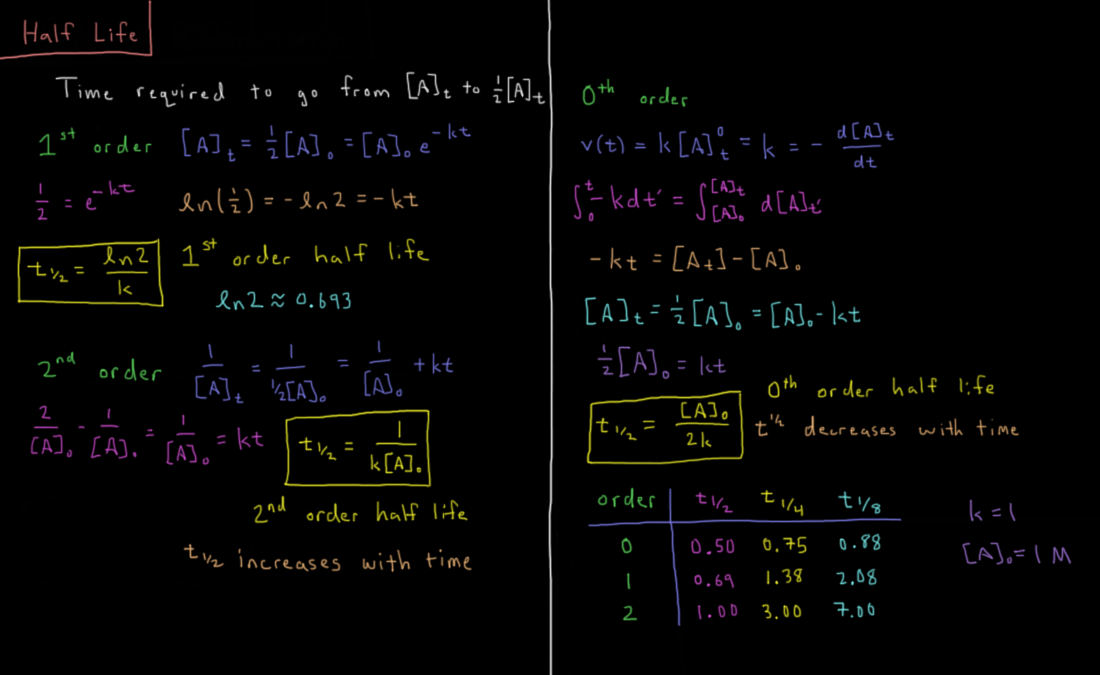 Half Life
Time required to go from [A]ₜ to ½[A]ₜ
1ˢᵗ order [A]ₜ = ½[A]₀ = [A]₀ e^-kt
½ = e^-kt ln(½) = -ln2 = -kt
t½ = ln2/k 1ˢᵗ order half life
ln2 ≈ 0.693
2ⁿᵈ order 1/[A]ₜ = 1/½[A]₀ = 1/[A]₀ + kt
2/[A]₀ - 1/[A]₀ = 1/[A]₀ = kt t½ = 1/k[A]₀
2ⁿᵈ order half life
t½ increases with time
0ᵗʰ order
v(t) = k[A]ₜ⁰ = k = - d[A]ₜ/dt
∫₀ᵗ -kdt' = ∫_[A]₀^[A]ₜ d[A]ₜ'
-kt = [Aₜ] - [A]₀
[A]ₜ = ½[A]₀ = [A]₀ - kt
½[A]₀ = kt
t½ = [A]₀/2k 0ᵗʰ order half life
t^½ decreases with time
order t1/2 t1/4 t1/8
0 0.50 0.75 0.88
1 0.69 1.38 2.08
2 1.00 3.00 7.00
k = 1
[A]₀ = 1 M